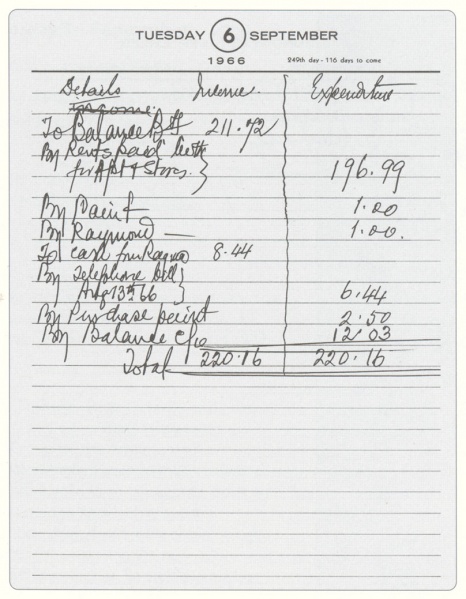 TUESDAY 6 SEPTEMBER
1966 249th day - 116 days to come
Details Income Expenditure
Income
To Balance B/f 211.72
By Rents paid both
for Apt & Stores 196.99
By Paint 1.00
By Raymond — 1.00.
To cash from 8.44
By Telephone bill
Aug 13th 66 6.44
By Purchase 2.50
By Balance c/o 12.03
Total 220.16 220.16